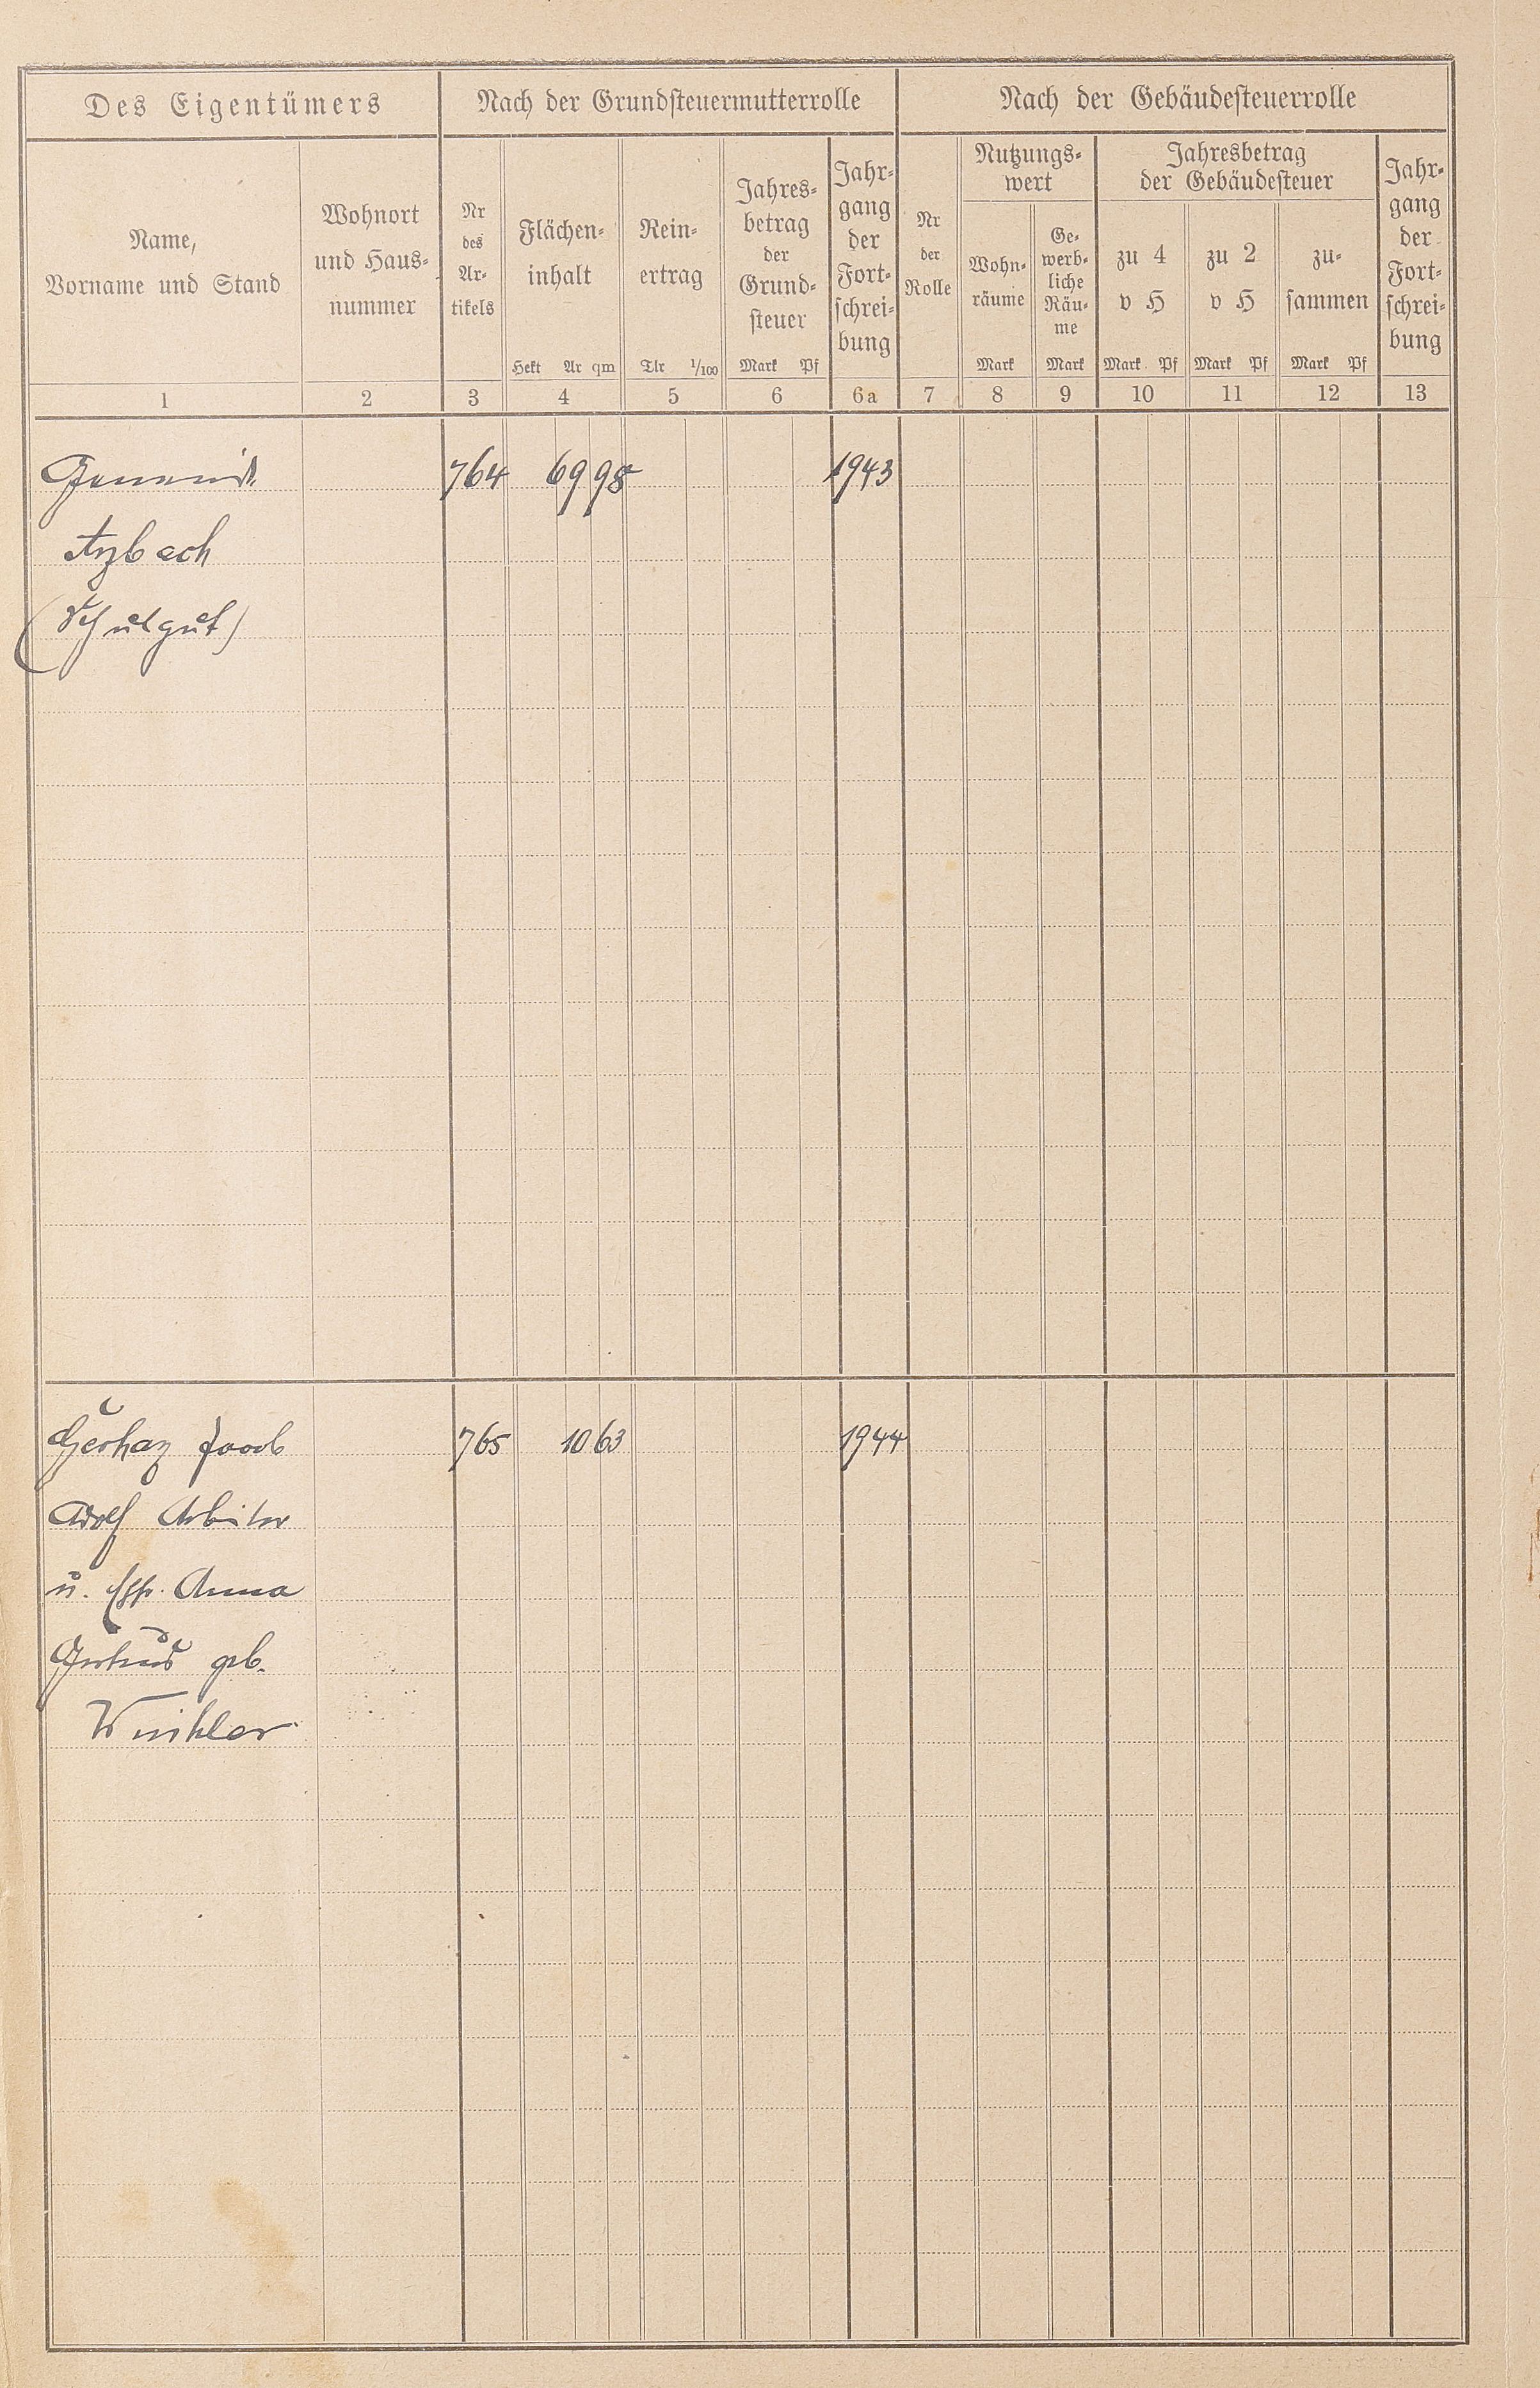 Des Eigentümers
Nach der Grundsteuermutterrolle
Nach der Gebäudesteuerrolle
Name,
Vorname und Stand
Wohnort
und Haus-
nummer
Nr
des
Ar-
tikels
Flächen-
inhalt
Hekt Ar qm
Rein-
ertrag
Tlr 1/100
Jahres-
betrag
der
Grund-
steuer
Mark Pf
Jahr-
gang
der
Fort-
schrei-
bung
Nr
der
Rolle
Nutzungs-
wert
Wohn-
räume
Mark
Ge-
werb-
liche
Räu-
me
Mark
Jahresbetrag
der Gebäudesteuer
zu 4
v H
Mark Pf
zu 2
v H
Mark Pf
zu-
sammen
Mark Pf
Jahr-
gang
der
Fort-
schrei-
bung
1 2 3 4 5 6 6a 7 8 9 10 11 12 13
764 69 98 1943
Atzbach
(Schulgut)
765 10 63 1944
Adolf Arbeiter
u. Ehfr. Anna
Gertrud geb.
Winkler